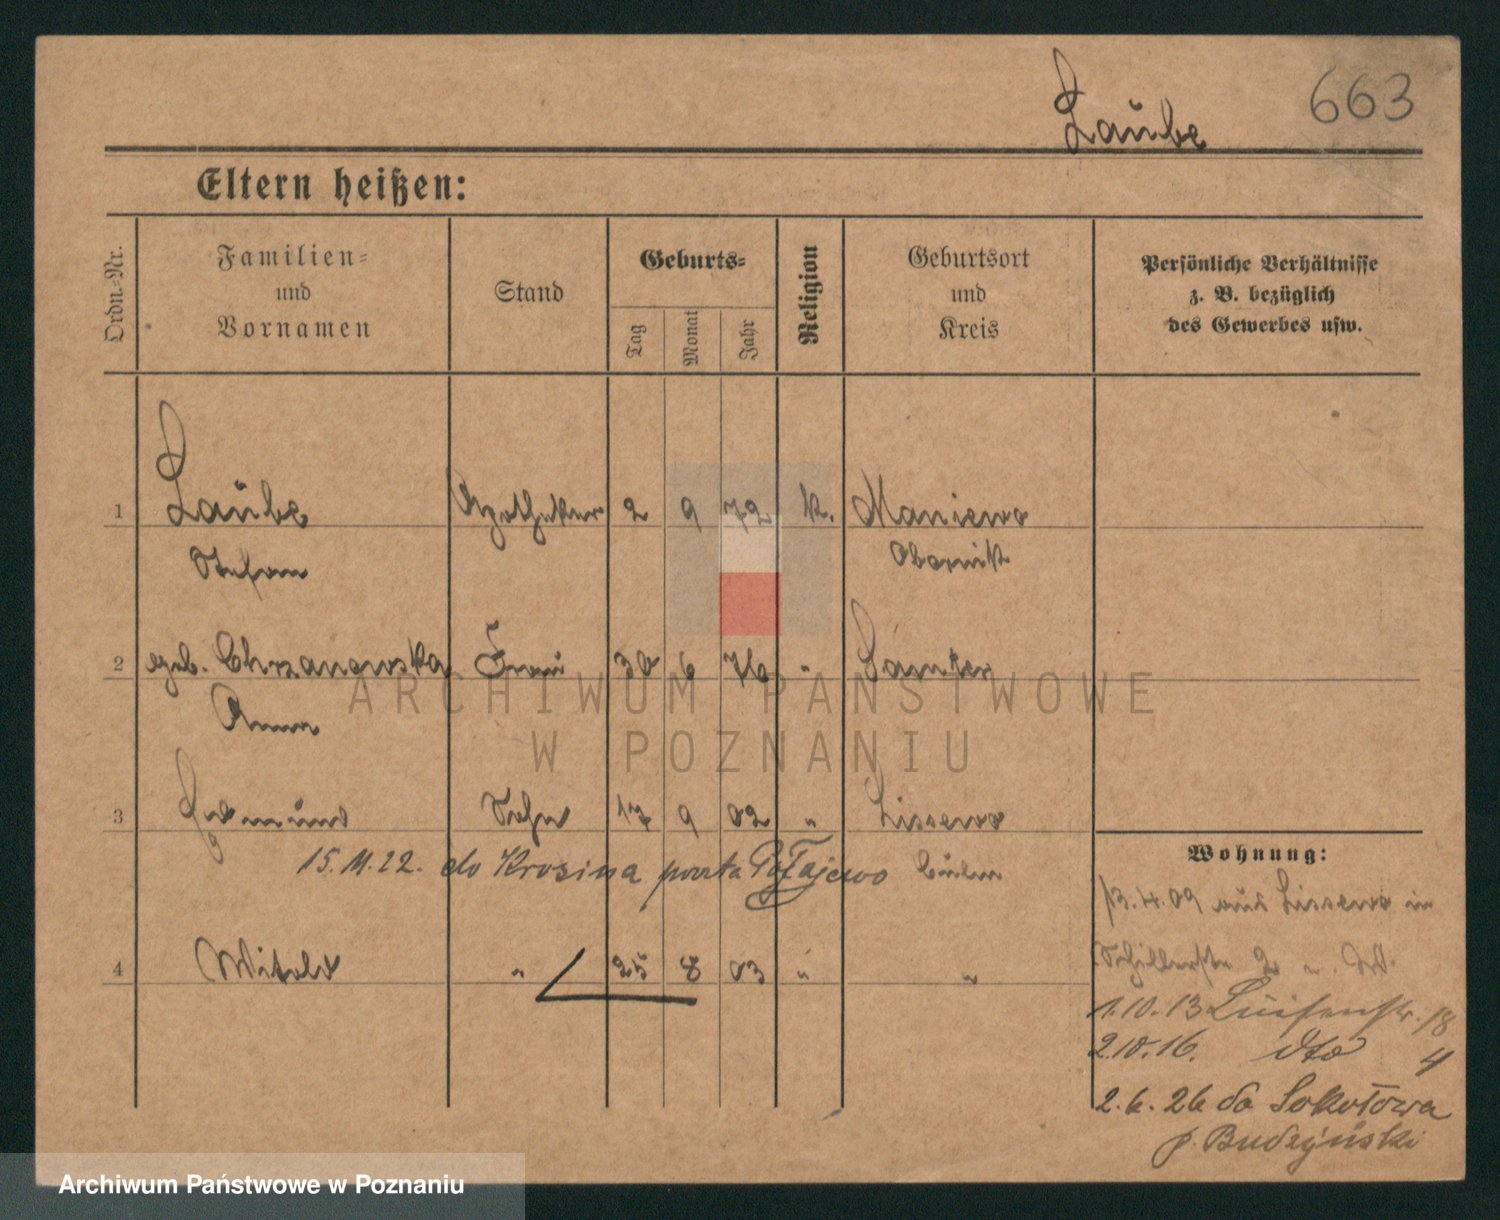 663
Laübe
Eltern heißen:
Ordn.-Nr.
Familien-
und
Vornamen
Stand
Geburts-
Tag
Monat
Jahr
Religion
Geburtsort
und
Kreis
Persönliche Verhältnisse
z. B. bezüglich
des Gewerbes usw.
1 Laübe Apotheker 2 9 72 k. Maniewo
Stefan Obornik
2 geb. Chrzanowska Frau 30 6 76 " Samter
Anna
3 Edmünd Sohn 17 9 02 " Lissewo
15.11.22. do Krosina poczta Połajewo Cülm
4 Witold " 25 8 03 " "
Wohnung:
13.4.09 aus Lissewo in
Schillerstr 2
1.10.13 Luisenstr. 18
2.10.16. dto 4
2.6.26 do Sokołowa
p. Budzyński
ARCHIWUM PAŃSTWOWE
W POZNANIU
Archiwum Państwowe w Poznaniu